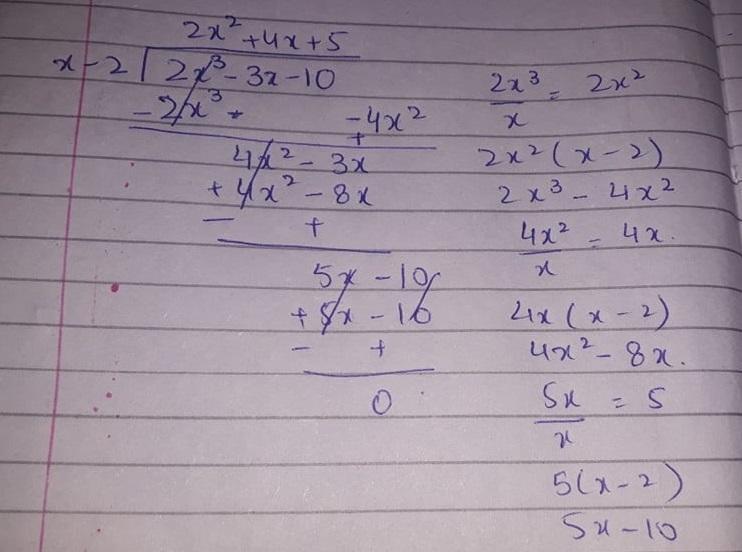 2x² + 4x + 5
x - 2 | 2x³ - 3x - 10
- 2x³ - 4x²
+
4x² - 3x
+ 4x² - 8x
- +
5x - 10
+ 5x - 10
- +
0
2x³/x = 2x²
2x² (x - 2)
2x³ - 4x²
4x²/x = 4x.
4x (x - 2)
4x² - 8x.
5x/x = 5
5(x - 2)
5x - 10